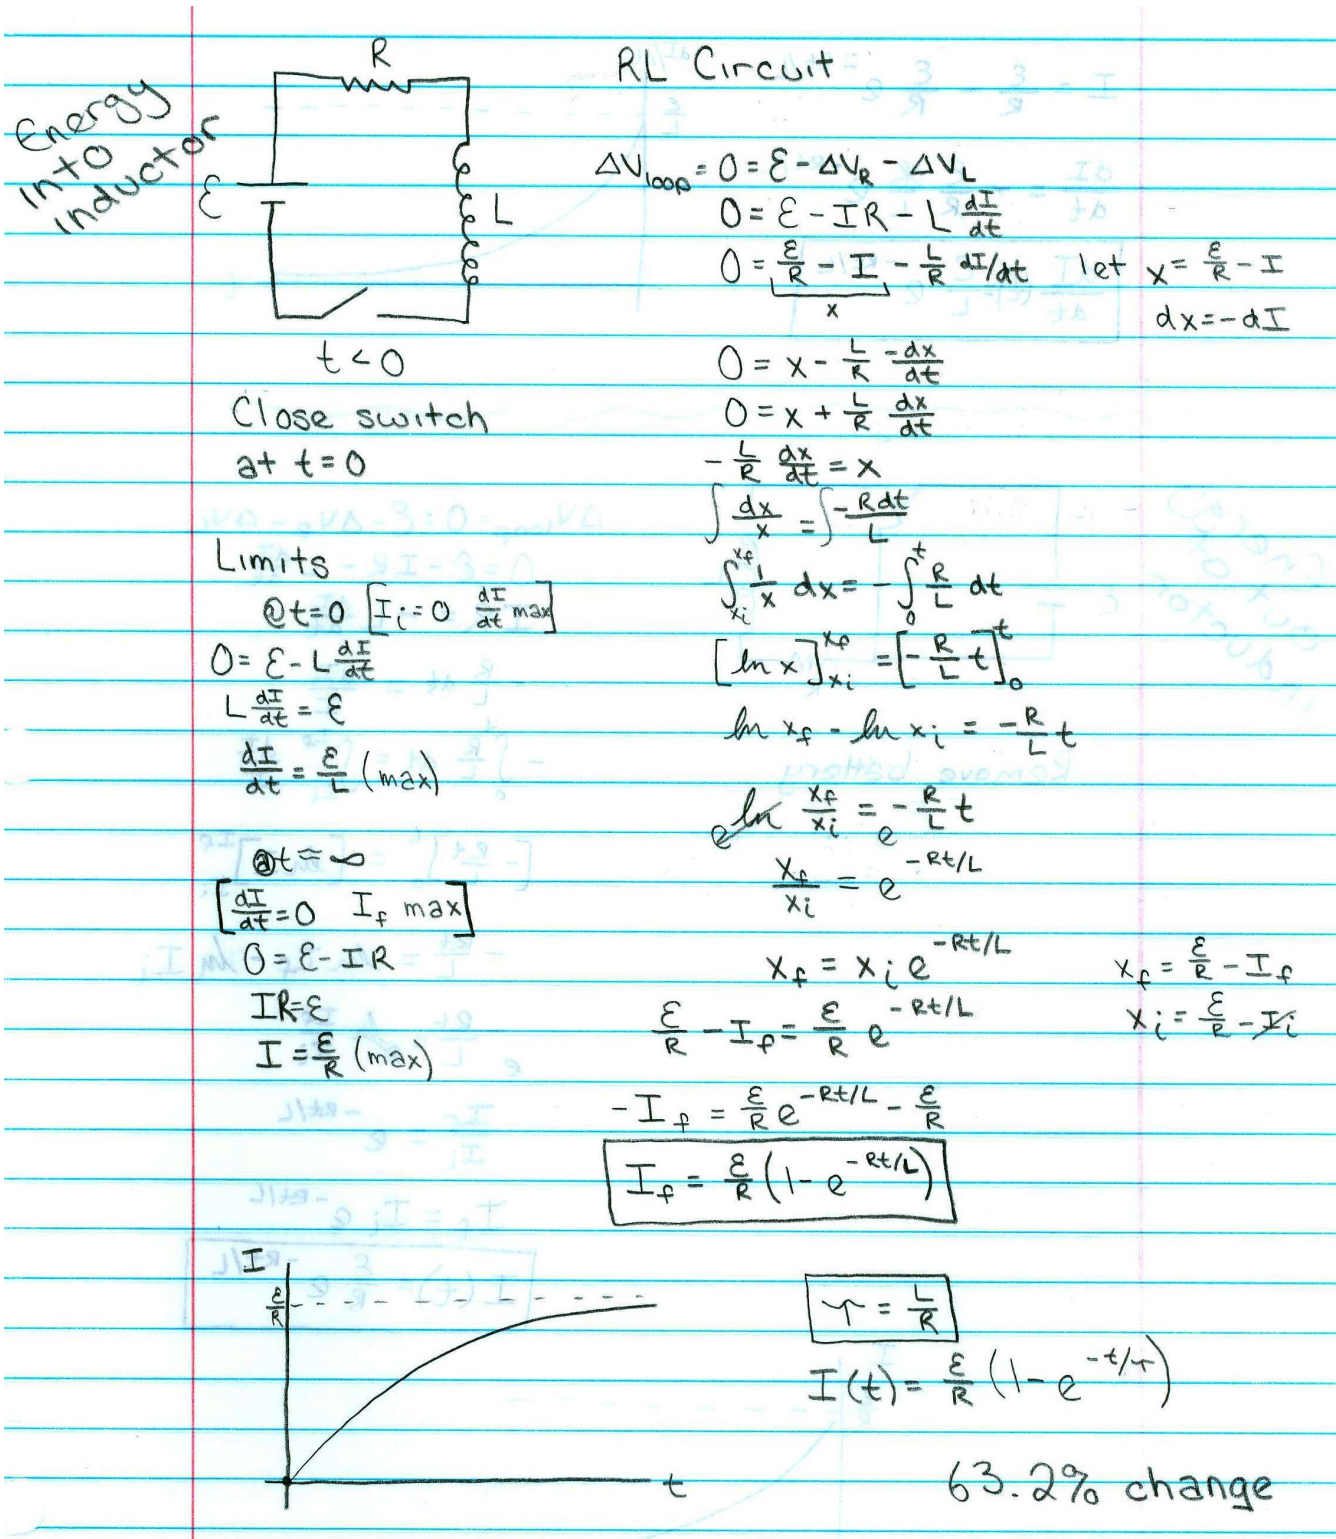 RL Circuit
Energy
into
inductor
R
ℰ
L
t < 0
Close switch
at t=0
Limits
@t=0 [I_i=0 dI/dt max]
0 = ℰ - L dI/dt
L dI/dt = ℰ
dI/dt = ℰ/L (max)
@t≈∞
[dI/dt=0 I_f max]
0 = ℰ - IR
IR=ℰ
I = ℰ/R (max)
ΔV_loop = 0 = ℰ - ΔV_R - ΔV_L
0 = ℰ - IR - L dI/dt
0 = ℰ/R - I - L/R dI/dt let x = ℰ/R - I
x
dx = -dI
0 = x - L/R -dx/dt
0 = x + L/R dx/dt
- L/R dx/dt = x
∫ dx/x = ∫ -Rdt/L
∫_{x_i}^{x_f} 1/x dx = - ∫_0^t R/L dt
[ln x]_{x_i}^{x_f} = [- R/L t]_0^t
ln x_f - ln x_i = -R/L t
e^{ln x_f/x_i} = e^{-R/L t}
x_f/x_i = e^{-Rt/L}
x_f = x_i e^{-Rt/L} x_f = ℰ/R - I_f
ℰ/R - I_f = ℰ/R e^{-Rt/L} x_i = ℰ/R - I_i
-I_f = ℰ/R e^{-Rt/L} - ℰ/R
I_f = ℰ/R (1 - e^{-Rt/L})
I
ℰ/R
t
τ = L/R
I(t) = ℰ/R (1 - e^{-t/τ})
63.2% change